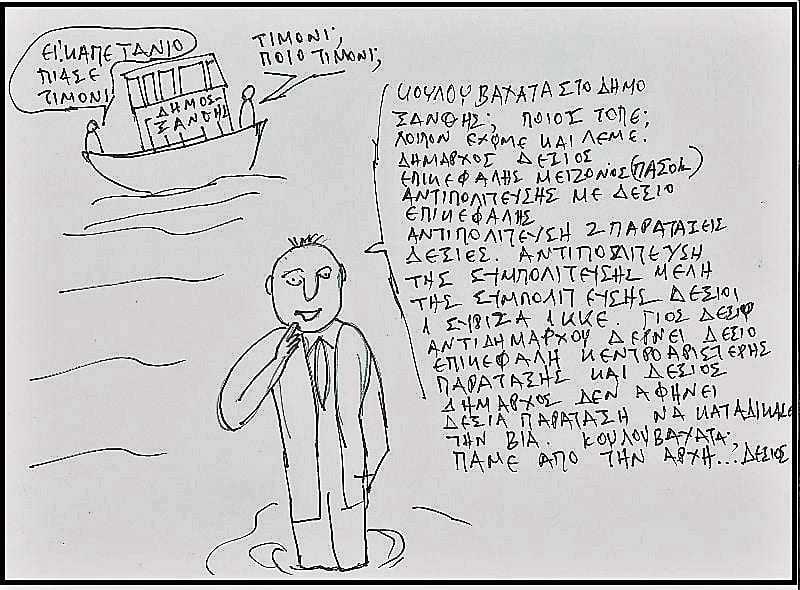 ΕΙ! ΚΑΠΕΤΑΝΙΟ
ΠΙΑΣΕ
ΤΙΜΟΝΙ
ΤΙΜΟΝΙ;
ΠΟΙΟ ΤΙΜΟΝΙ;
ΔΗΜΟΣ
ΞΑΝΘΗΣ
ΚΟΥΛΟΥΒΑΧΑΤΑ ΣΤΟ ΔΗΜΟ
ΞΑΝΘΗΣ; ΠΟΙΟΣ ΤΟΠΕ;
ΛΟΙΠΟΝ ΕΧΟΜΕ ΚΑΙ ΛΕΜΕ.
ΔΗΜΑΡΧΟΣ ΔΕΞΙΟΣ
ΕΠΙΚΕΦΑΛΗΣ ΜΕΙΖΟΝΟΣ (ΠΑΣΟΚ)
ΑΝΤΙΠΟΛΙΤΕΥΣΗΣ ΜΕ ΔΕΞΙΟ
ΕΠΙΚΕΦΑΛΗΣ
ΑΝΤΙΠΟΛΙΤΕΥΣΗ 2 ΠΑΡΑΤΑΞΕΙΣ
ΔΕΞΙΕΣ. ΑΝΤΙΠΟΛΙΤΕΥΣΗ
ΤΗΣ ΣΥΜΠΟΛΙΤΕΥΣΗΣ ΜΕΛΗ
ΤΗΣ ΣΥΜΠΟΛΙΤΕΥΣΗΣ ΔΕΞΙΟΙ
1 ΣΥΡΙΖΑ 1 ΚΚΕ. ΓΙΟΣ ΔΕΞΙΟΥ
ΑΝΤΙΔΗΜΑΡΧΟΥ ΔΕΡΝΕΙ ΔΕΞΙΟ
ΕΠΙΚΕΦΑΛΗ ΚΕΝΤΡΟΑΡΙΣΤΕΡΗΣ
ΠΑΡΑΤΑΞΗΣ ΚΑΙ ΔΕΞΙΟΣ
ΔΗΜΑΡΧΟΣ ΔΕΝ ΑΦΗΝΕΙ
ΔΕΞΙΑ ΠΑΡΑΤΑΞΗ ΝΑ ΚΑΤΑΔΙΚΑΣΕΙ
ΤΗΝ ΒΙΑ. ΚΟΥΛΟΥΒΑΧΑΤΑ;
ΠΑΜΕ ΑΠΟ ΤΗΝ ΑΡΧΗ... ΔΕΞΙΟΣ